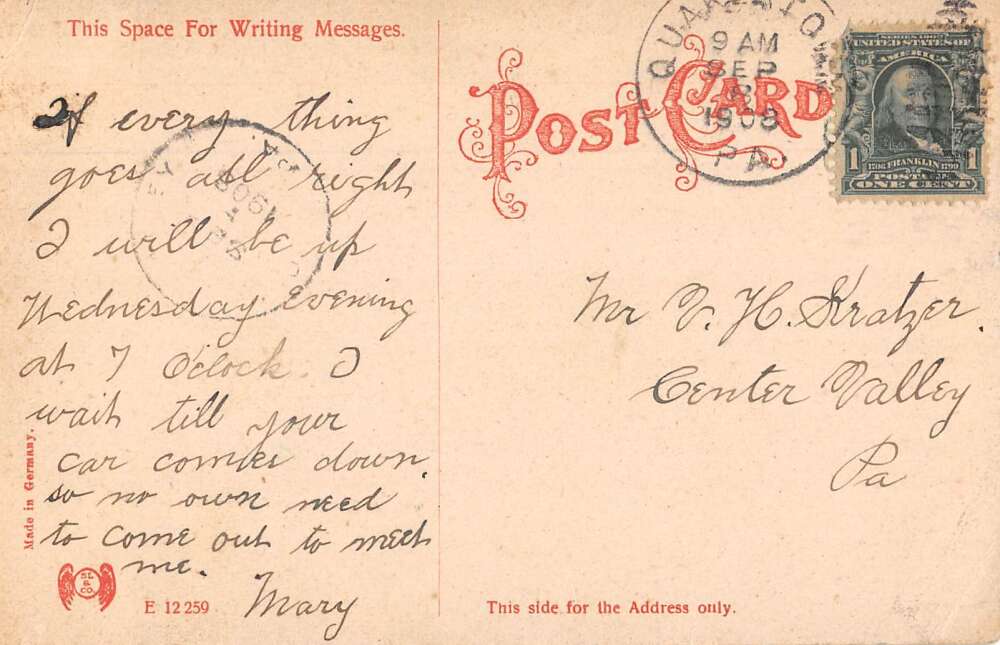 This Space For Writing Messages.
If every thing
goes all right
I will be up
Wednesday evening
at 7 O'clock I
wait till your
car comes down.
so no own need
to come out to meet
me.
Mary
Made in Germany.
SL
& CO
E 12 259
POST CARD
9 AM
SEP
8
1908
PA
SERIES 1902
UNITED STATES OF
AMERICA
1 1706 FRANKLIN 1790 1
POSTAGE
ONE CENT
Mr V. H. Kratzer.
Center Valley
Pa
This side for the Address only.